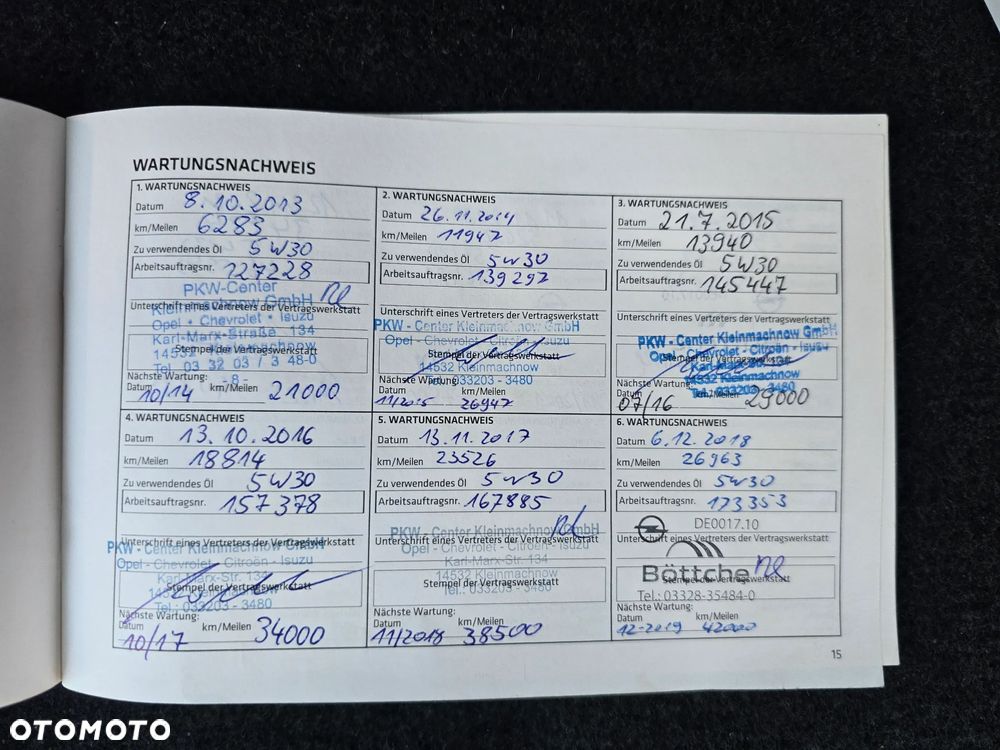 WARTUNGSNACHWEIS
1. WARTUNGSNACHWEIS
Datum 8.10.2013
km/Meilen 6283
Zu verwendendes Öl 5W30
Arbeitsauftragsnr. 127228
PKW-Center
Kleinmachnow GmbH
Unterschrift eines Vertreters der Vertragswerkstatt
Opel • Chevrolet • Isuzu
Karl-Marx-Straße 134
Stempel der Vertragswerkstatt
14532 Kleinmachnow
Tel. 03 32 03 / 3 48-0
- 8 -
Nächste Wartung:
Datum 10/14 km/Meilen 21000
2. WARTUNGSNACHWEIS
Datum 26.11.2014
km/Meilen 11947
Zu verwendendes Öl 5W30
Arbeitsauftragsnr. 139292
Unterschrift eines Vertreters der Vertragswerkstatt
PKW - Center Kleinmachnow GmbH
Opel - Chevrolet - Citroën - Isuzu
Stempel der Vertragswerkstatt
14532 Kleinmachnow
Tel.: 033203 - 3480
Nächste Wartung:
Datum 11/2015 km/Meilen 26947
3. WARTUNGSNACHWEIS
Datum 21.7.2015
km/Meilen 13940
Zu verwendendes Öl 5W30
Arbeitsauftragsnr. 145447
Unterschrift eines Vertreters der Vertragswerkstatt
PKW - Center Kleinmachnow GmbH
Opel - Chevrolet - Citroën - Isuzu
Stempel der Vertragswerkstatt
Karl-Marx-Str. 134
14532 Kleinmachnow
Tel.: 033203 - 3480
Nächste Wartung:
Datum 07/16 km/Meilen 29000
4. WARTUNGSNACHWEIS
Datum 13.10.2016
km/Meilen 18814
Zu verwendendes Öl 5W30
Arbeitsauftragsnr. 157378
Unterschrift eines Vertreters der Vertragswerkstatt
PKW - Center Kleinmachnow GmbH
Opel - Chevrolet - Citroën - Isuzu
Karl-Marx-Str. 134
Stempel der Vertragswerkstatt
14532 Kleinmachnow
Tel.: 033203 - 3480
Nächste Wartung:
Datum 10/17 km/Meilen 34000
5. WARTUNGSNACHWEIS
Datum 13.11.2017
km/Meilen 23526
Zu verwendendes Öl 5W30
Arbeitsauftragsnr. 167885
PKW - Center Kleinmachnow GmbH
Unterschrift eines Vertreters der Vertragswerkstatt
Opel - Chevrolet - Citroën - Isuzu
Karl-Marx-Str. 134
14532 Kleinmachnow
Stempel der Vertragswerkstatt
Tel.: 033203 - 3480
Nächste Wartung:
Datum 11/2018 km/Meilen 38500
6. WARTUNGSNACHWEIS
Datum 6.12.2018
km/Meilen 26963
Zu verwendendes Öl 5W30
Arbeitsauftragsnr. 173353
DE0017.10
Unterschrift eines Vertreters der Vertragswerkstatt
Böttche
Stempel der Vertragswerkstatt
Tel.: 03328-35484-0
Nächste Wartung:
Datum 12-2019 km/Meilen 42000
15
OTOMOTO